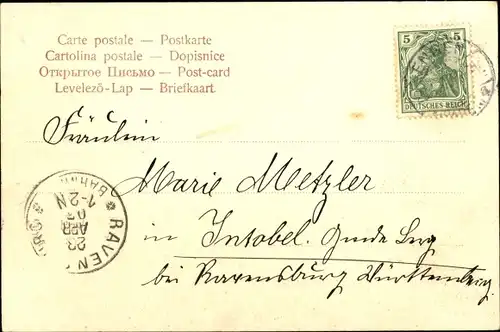 Carte postale — Postkarte
Cartolina postale — Dopisnice
Открытое Письмо — Post-card
Levelező-Lap — Briefkaart
5 5
DEUTSCHES REICH
Fräulein
Marie Metzler
in Intobel.
bei Ravensburg Württemberg
RAVEN
BAHNH
23
APR
1-2N